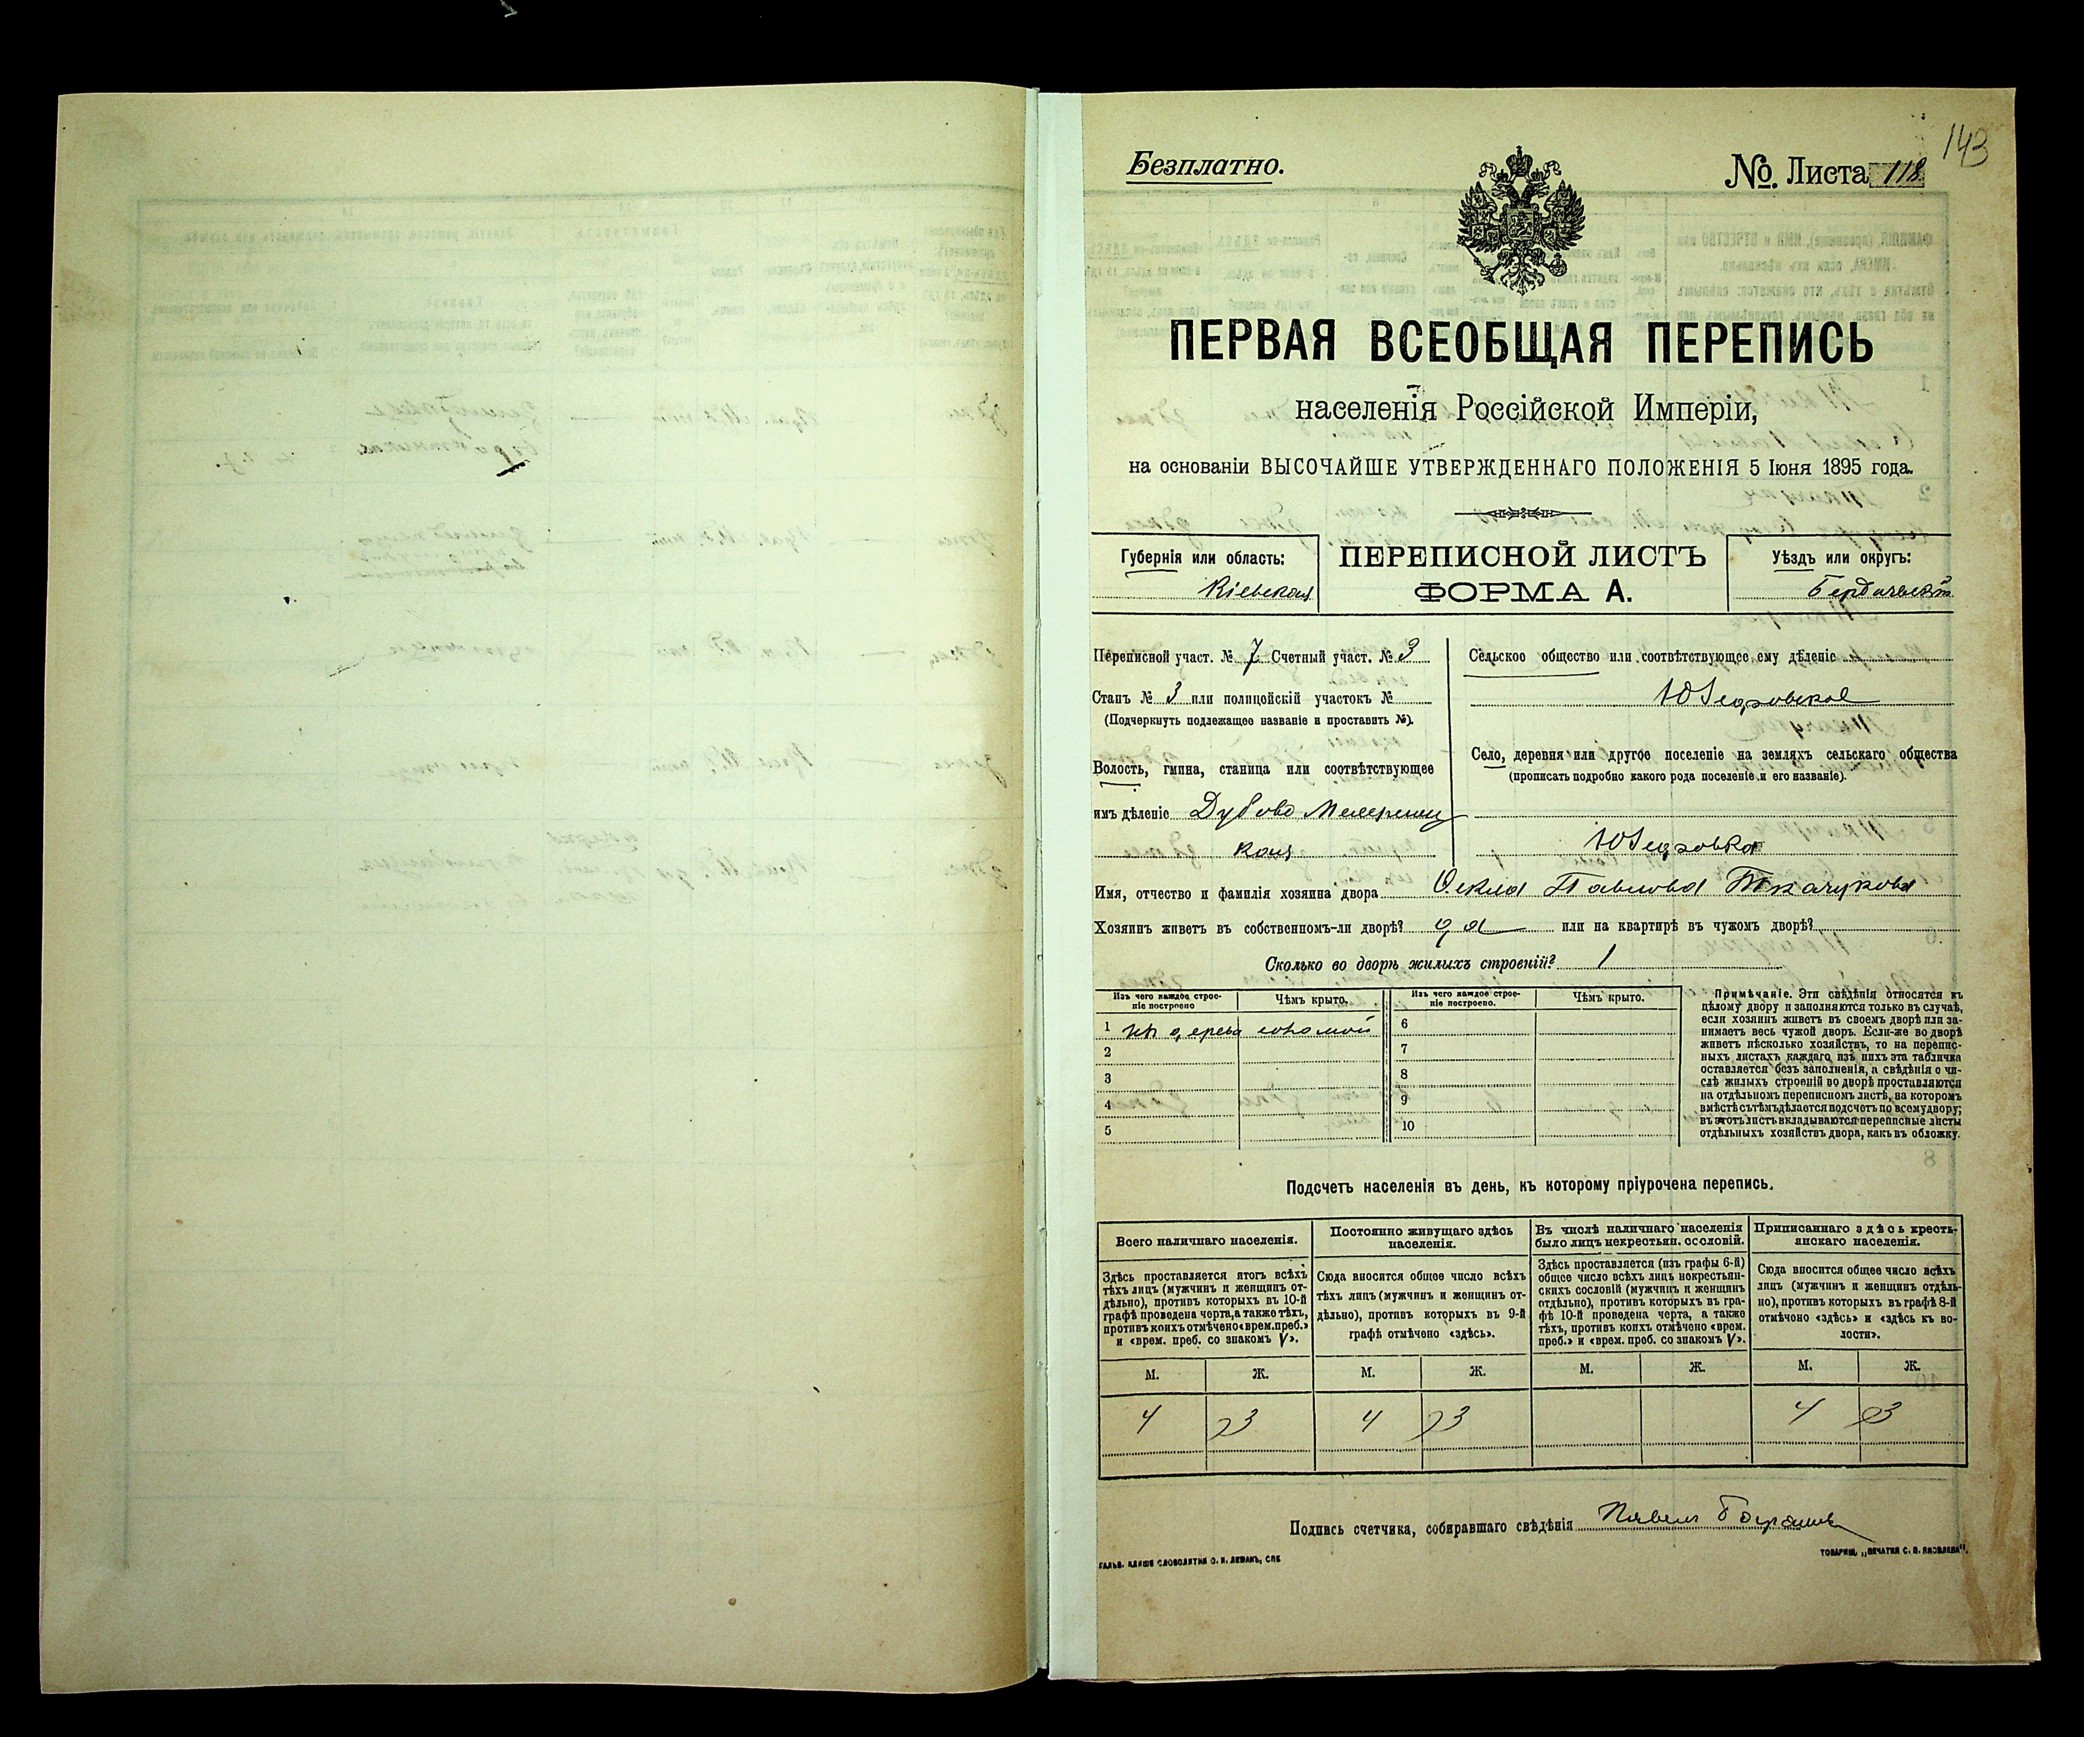 143
Безплатно.
№. Листа 118
ПЕРВАЯ ВСЕОБЩАЯ ПЕРЕПИСЬ
населенія Россійской Имперіи,
на основаніи ВЫСОЧАЙШЕ УТВЕРЖДЕННАГО ПОЛОЖЕНІЯ 5 Іюня 1895 года.
Губернія или область:
Кіевская
ПЕРЕПИСНОЙ ЛИСТЪ
ФОРМА А.
Уѣздъ или округъ:
Бердичевскій
Переписной участ. № 7 Счетный участ. № 3
Станъ № 3 или полицейскій участокъ №
(Подчеркнуть подлежащее названіе и проставить №).
Волость, гмина, станица или соотвѣтствующее
имъ дѣленіе Дубово Махаринец
кая
Сельское общество или соотвѣтствующее ему дѣленіе
Юзефовское
Село, деревня или другое поселеніе на земляхъ сельскаго общества
(прописать подробно какого рода поселеніе и его названіе).
Юзефовка
Имя, отчество и фамилія хозяина двора Ѳекла Павлова Ткачукова
Хозяинъ живетъ въ собственномъ-ли дворѣ? да или на квартирѣ въ чужомъ дворѣ?
Сколько во дворѣ жилыхъ строеній? 1
Изъ чего каждое строе-
ніе построено
Чѣмъ крыто.
Изъ чего каждое строе-
ніе построено.
Чѣмъ крыто.
1 изъ дерева соломой 6
2 7
3 8
4 9
5 10
Примѣчаніе. Эти свѣдѣнія относятся къ
цѣлому двору и заполняются только въ случаѣ,
если хозяинъ живетъ въ своемъ дворѣ или за-
нимаетъ весь чужой дворъ. Если-же во дворѣ
живетъ нѣсколько хозяйствъ, то на перепис-
ныхъ листахъ каждаго изъ нихъ эта табличка
оставляется безъ заполненія, а свѣдѣнія о чи-
слѣ жилыхъ строеній во дворѣ проставляются
на отдѣльномъ переписномъ листѣ, на которомъ
вмѣстѣ съ тѣмъ дѣлается подсчетъ по всему двору;
въ этотъ листъ вкладываются переписные листы
отдѣльныхъ хозяйствъ двора, какъ въ обложку.
Подсчетъ населенія въ день, къ которому пріурочена перепись.
Всего наличнаго населенія.
Здѣсь проставляется итогъ всѣхъ
тѣхъ лицъ (мужчинъ и женщинъ от-
дѣльно), противъ которыхъ въ 10-й
графѣ проведена черта, а также тѣхъ,
противъ коихъ отмѣчено «врем. преб.»
и «врем. преб. со знакомъ V».
Постоянно живущаго здѣсь
населенія.
Сюда вносится общее число всѣхъ
тѣхъ лицъ (мужчинъ и женщинъ от-
дѣльно), противъ которыхъ въ 9-й
графѣ отмѣчено «здѣсь».
Въ числѣ наличнаго населенія
было лицъ некрестьян. сословій.
Здѣсь проставляется (изъ графы 6-й)
общее число всѣхъ лицъ некрестьян-
скихъ сословій (мужчинъ и женщинъ
отдѣльно), противъ которыхъ въ гра-
фѣ 10-й проведена черта, а также
тѣхъ, противъ коихъ отмѣчено «врем.
преб.» и «врем. преб. со знакомъ V».
Приписаннаго здѣсь кресть-
янскаго населенія.
Сюда вносится общее число всѣхъ
лицъ (мужчинъ и женщинъ отдѣль-
но), противъ которыхъ въ графѣ 8-й
отмѣчено «здѣсь» и «здѣсь къ во-
лости».
М. Ж. М. Ж. М. Ж. М. Ж.
4 3 4 3 4 3
Подпись счетчика, собиравшаго свѣдѣнія Павелъ
ГАЛЬВ. КЛИШЕ СЛОВОЛИТНИ О. И. ЛЕМАНЪ, СПБ
ТОВАРИЩ. „ПЕЧАТНЯ С. П. ЯКОВЛЕВА".